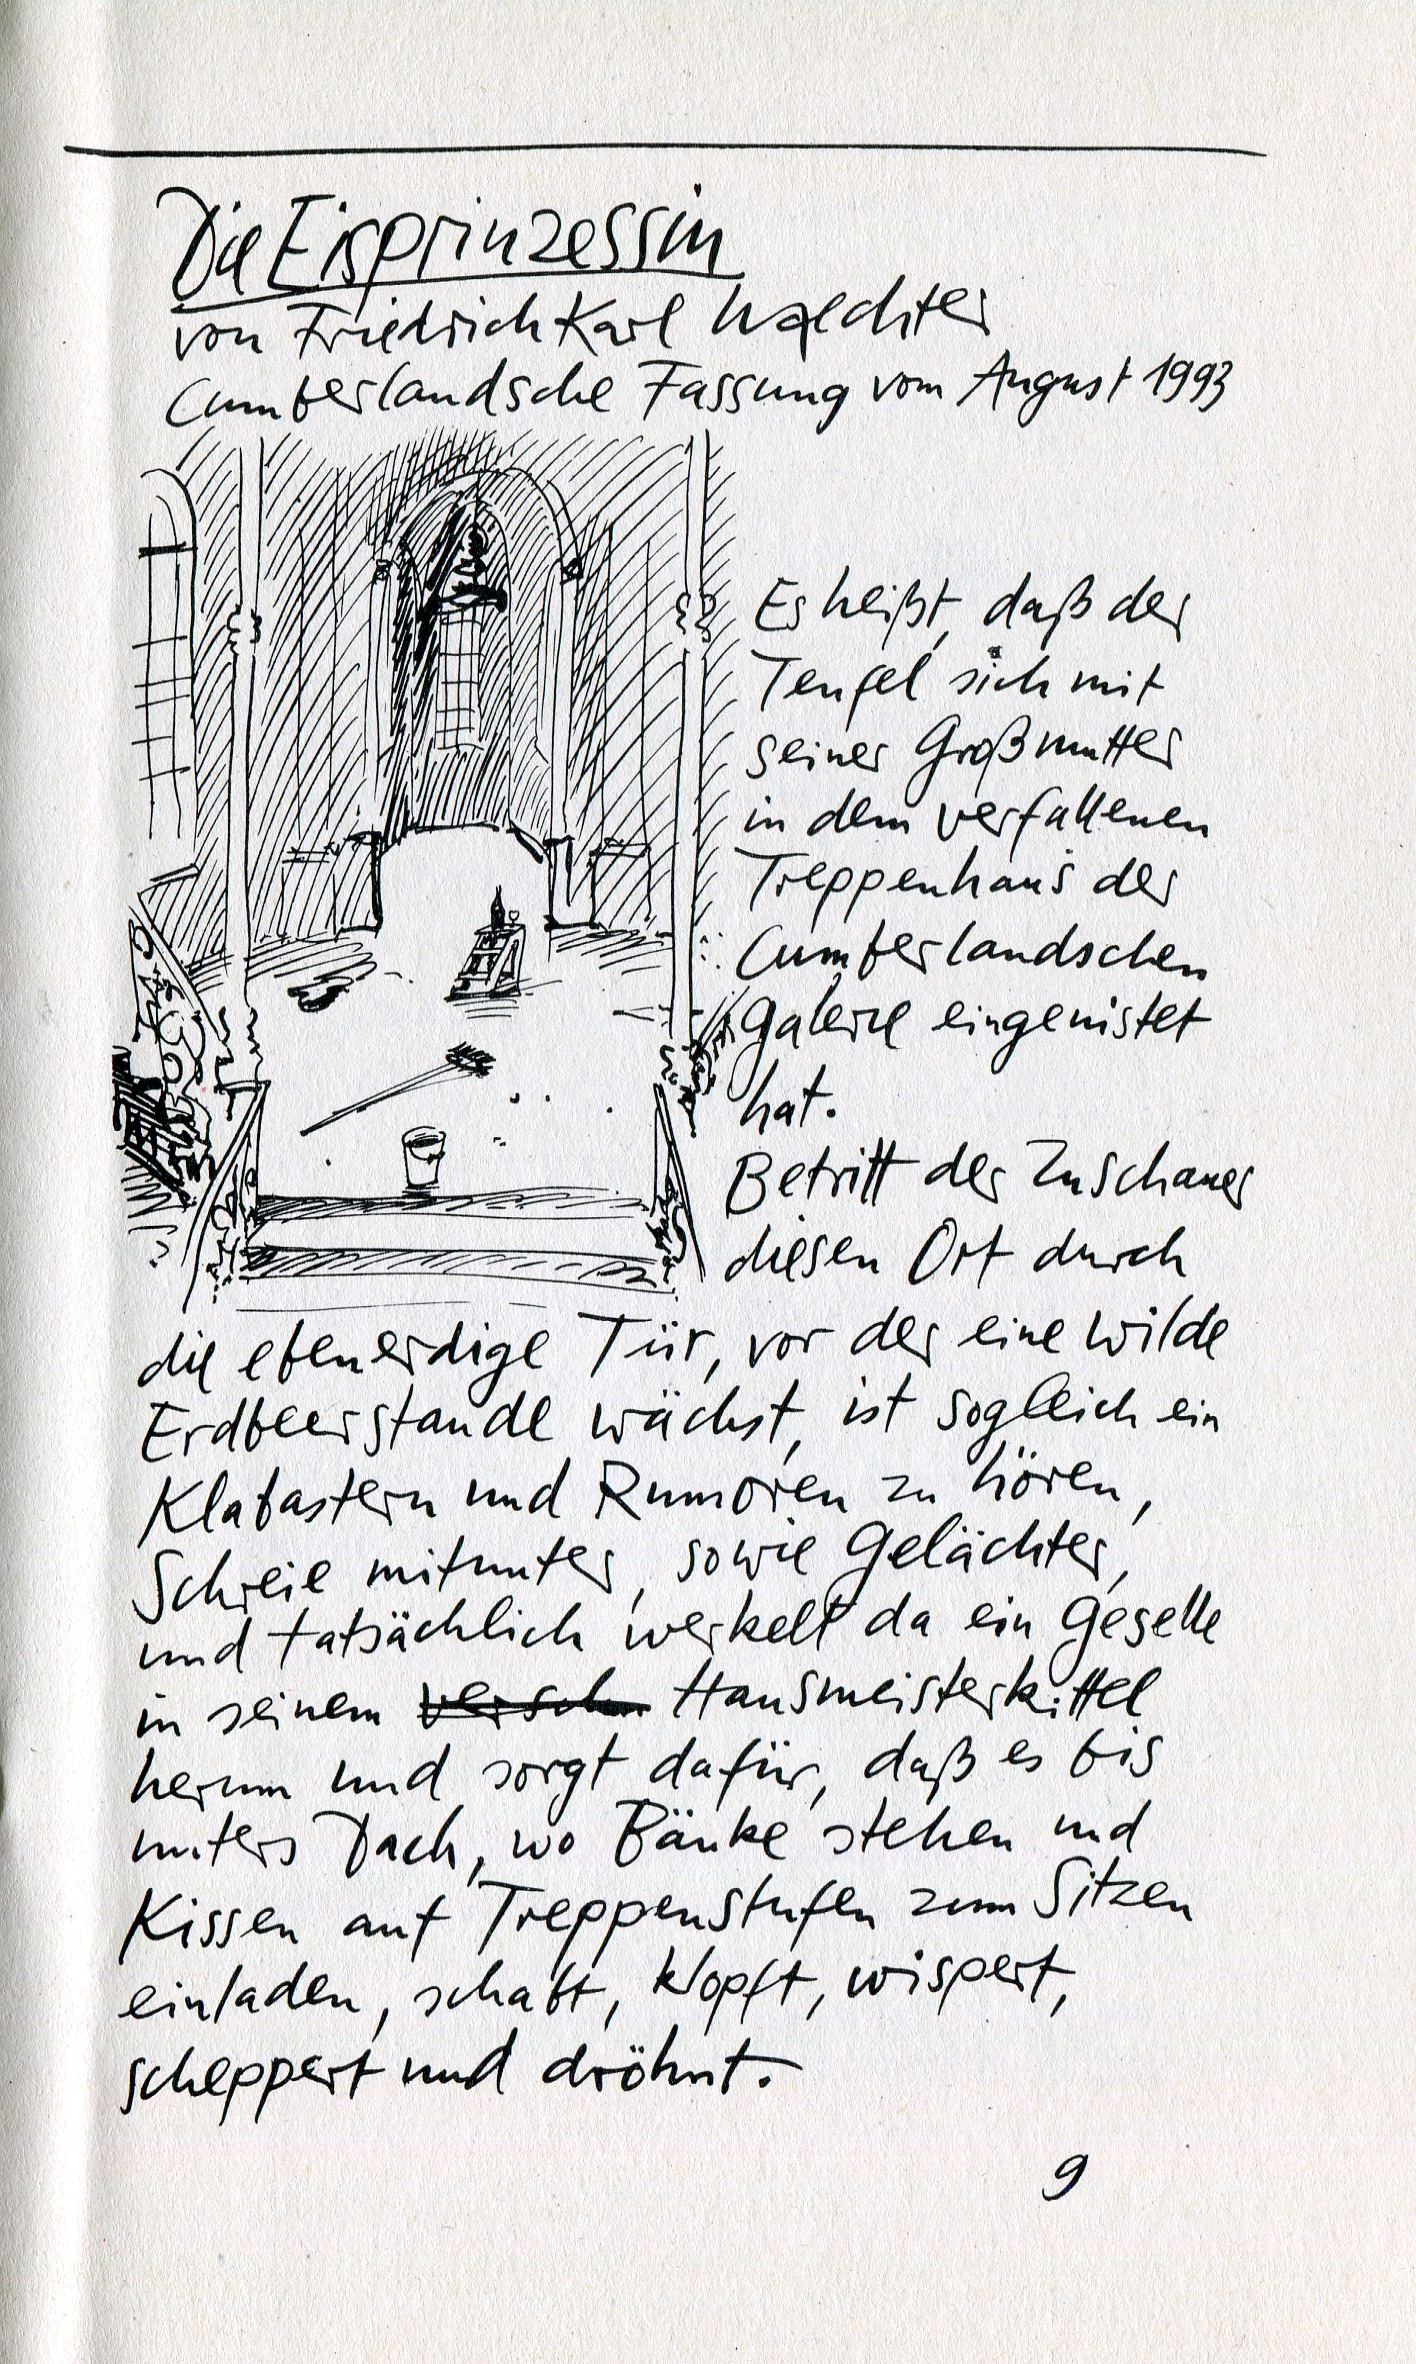 Die Eisprinzessin
von Friedrich Karl Waechter
Cumberlandsche Fassung vom August 1993
Es heißt, daß der
Teufel sich mit
seiner Großmutter
in dem verfallenen
Treppenhaus der
Cumberlandschen
Galerie eingenistet
hat.
Betritt der Zuschauer
diesen Ort durch
die ebenerdige Tür, vor der eine wilde
Erdbeerstaude wächst, ist sogleich ein
Klabastern und Rumoren zu hören,
Schreie mitunter, sowie Gelächter,
und tatsächlich werkelt da ein Geselle
in seinem versch Hausmeisterkittel
herum und sorgt dafür, daß es bis
unters Dach, wo Bänke stehen und
Kissen auf Treppenstufen zum Sitzen
einladen, schabt, klopft, wispert,
scheppert und dröhnt.
9